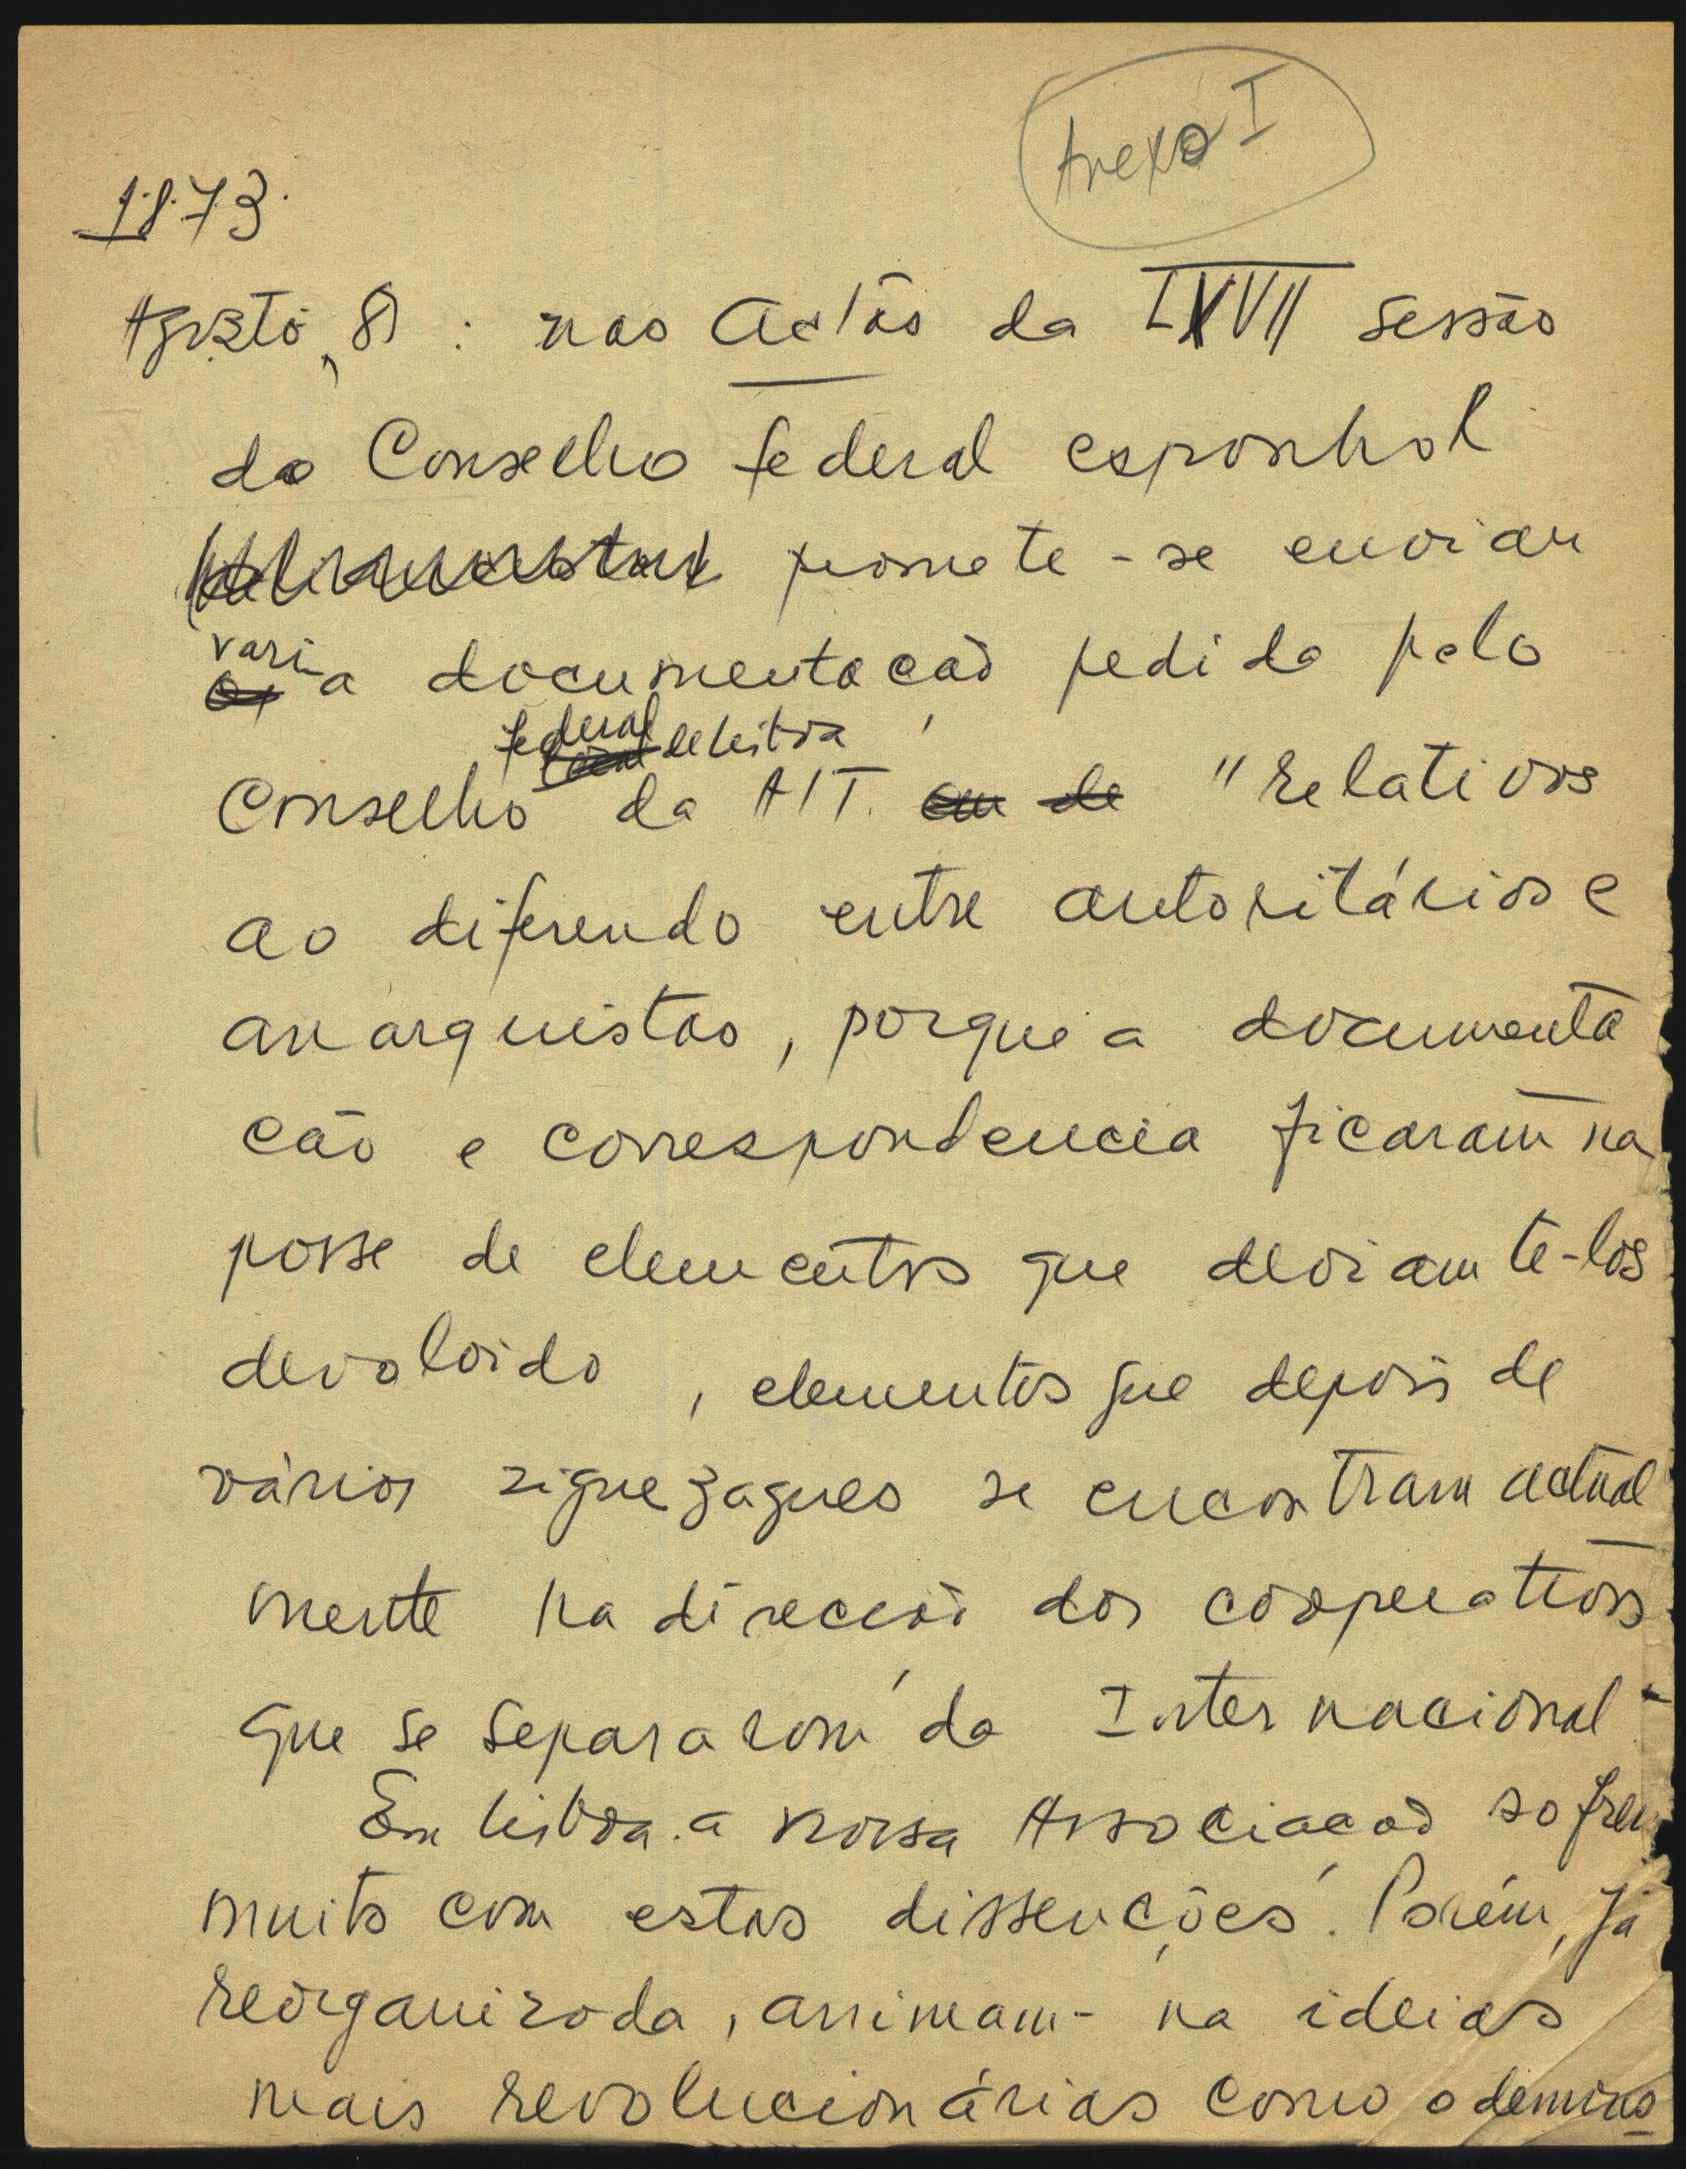 Anexo I
1873
Agosto, 8 : nas Actas da LXVII sessão
do Conselho federal espanhol
promete-se enviar
vária documentação pedida pelo
federal de Lisboa
Conselho da AIT. em de "relativos
ao diferendo entre autoritários e
anarquistas, porque a documenta
ção e correspondencia ficaram na
posse de elementos que deviam tê-los
devolvido, elementos que depois de
vários ziguezagues se encontram actual
mente na direcção dos cooperativos
que se separaram da Internacional
Em Lisboa a nossa Associação sofreu
muito com estas dissenções. Porém, já
reorganizada, animam-na ideias
mais revolucionárias como o demons